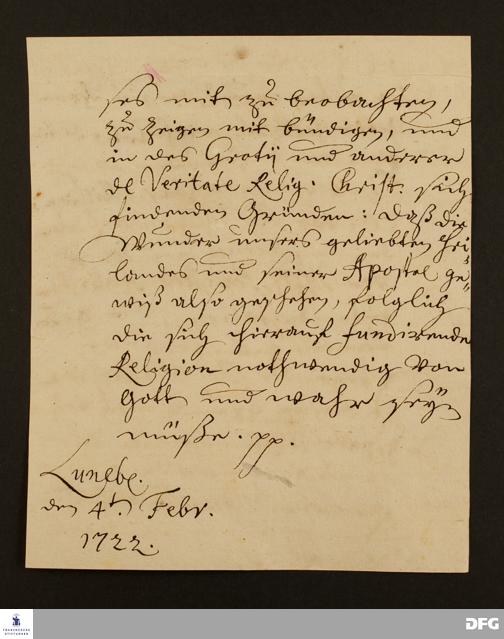 ses mit zu beobachten,
zu zeigen mit bündigen, und
in des Grotij und anderer
de Veritate Relig. Christ. sich
findenden Gründen: daß die
Wunder unsers geliebten Hei-
landes und seiner Apostel ge-
wiß also geschehen, folglich
die sich hierauf fundirende
Religion nothwendig von
Gott und wahr seyn
müße. pp.
Luneb.
den 4t. Febr.
1722.
FRANCKESCHE
STIFTUNGEN
DFG